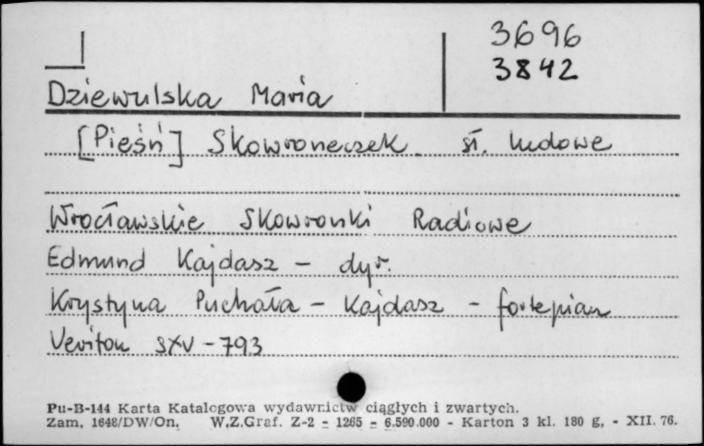 3696
3842
Dziewulska Maria
[Pieśń] Skowroneczek sł. ludowe
Wrocławskie Skowronki Radiowe
Edmund Kajdasz - dyr.
Krystyna Puchała - Kajdasz - fortepian
Veriton SXV - 793
Pu-B-144 Karta Katalogowa wydawnictw ciągłych i zwartych.
Zam. 1648/DW/On. W.Z.Graf. Z-2 - 1265 - 6.590.000 - Karton 3 kl. 180 g. - XII. 76.